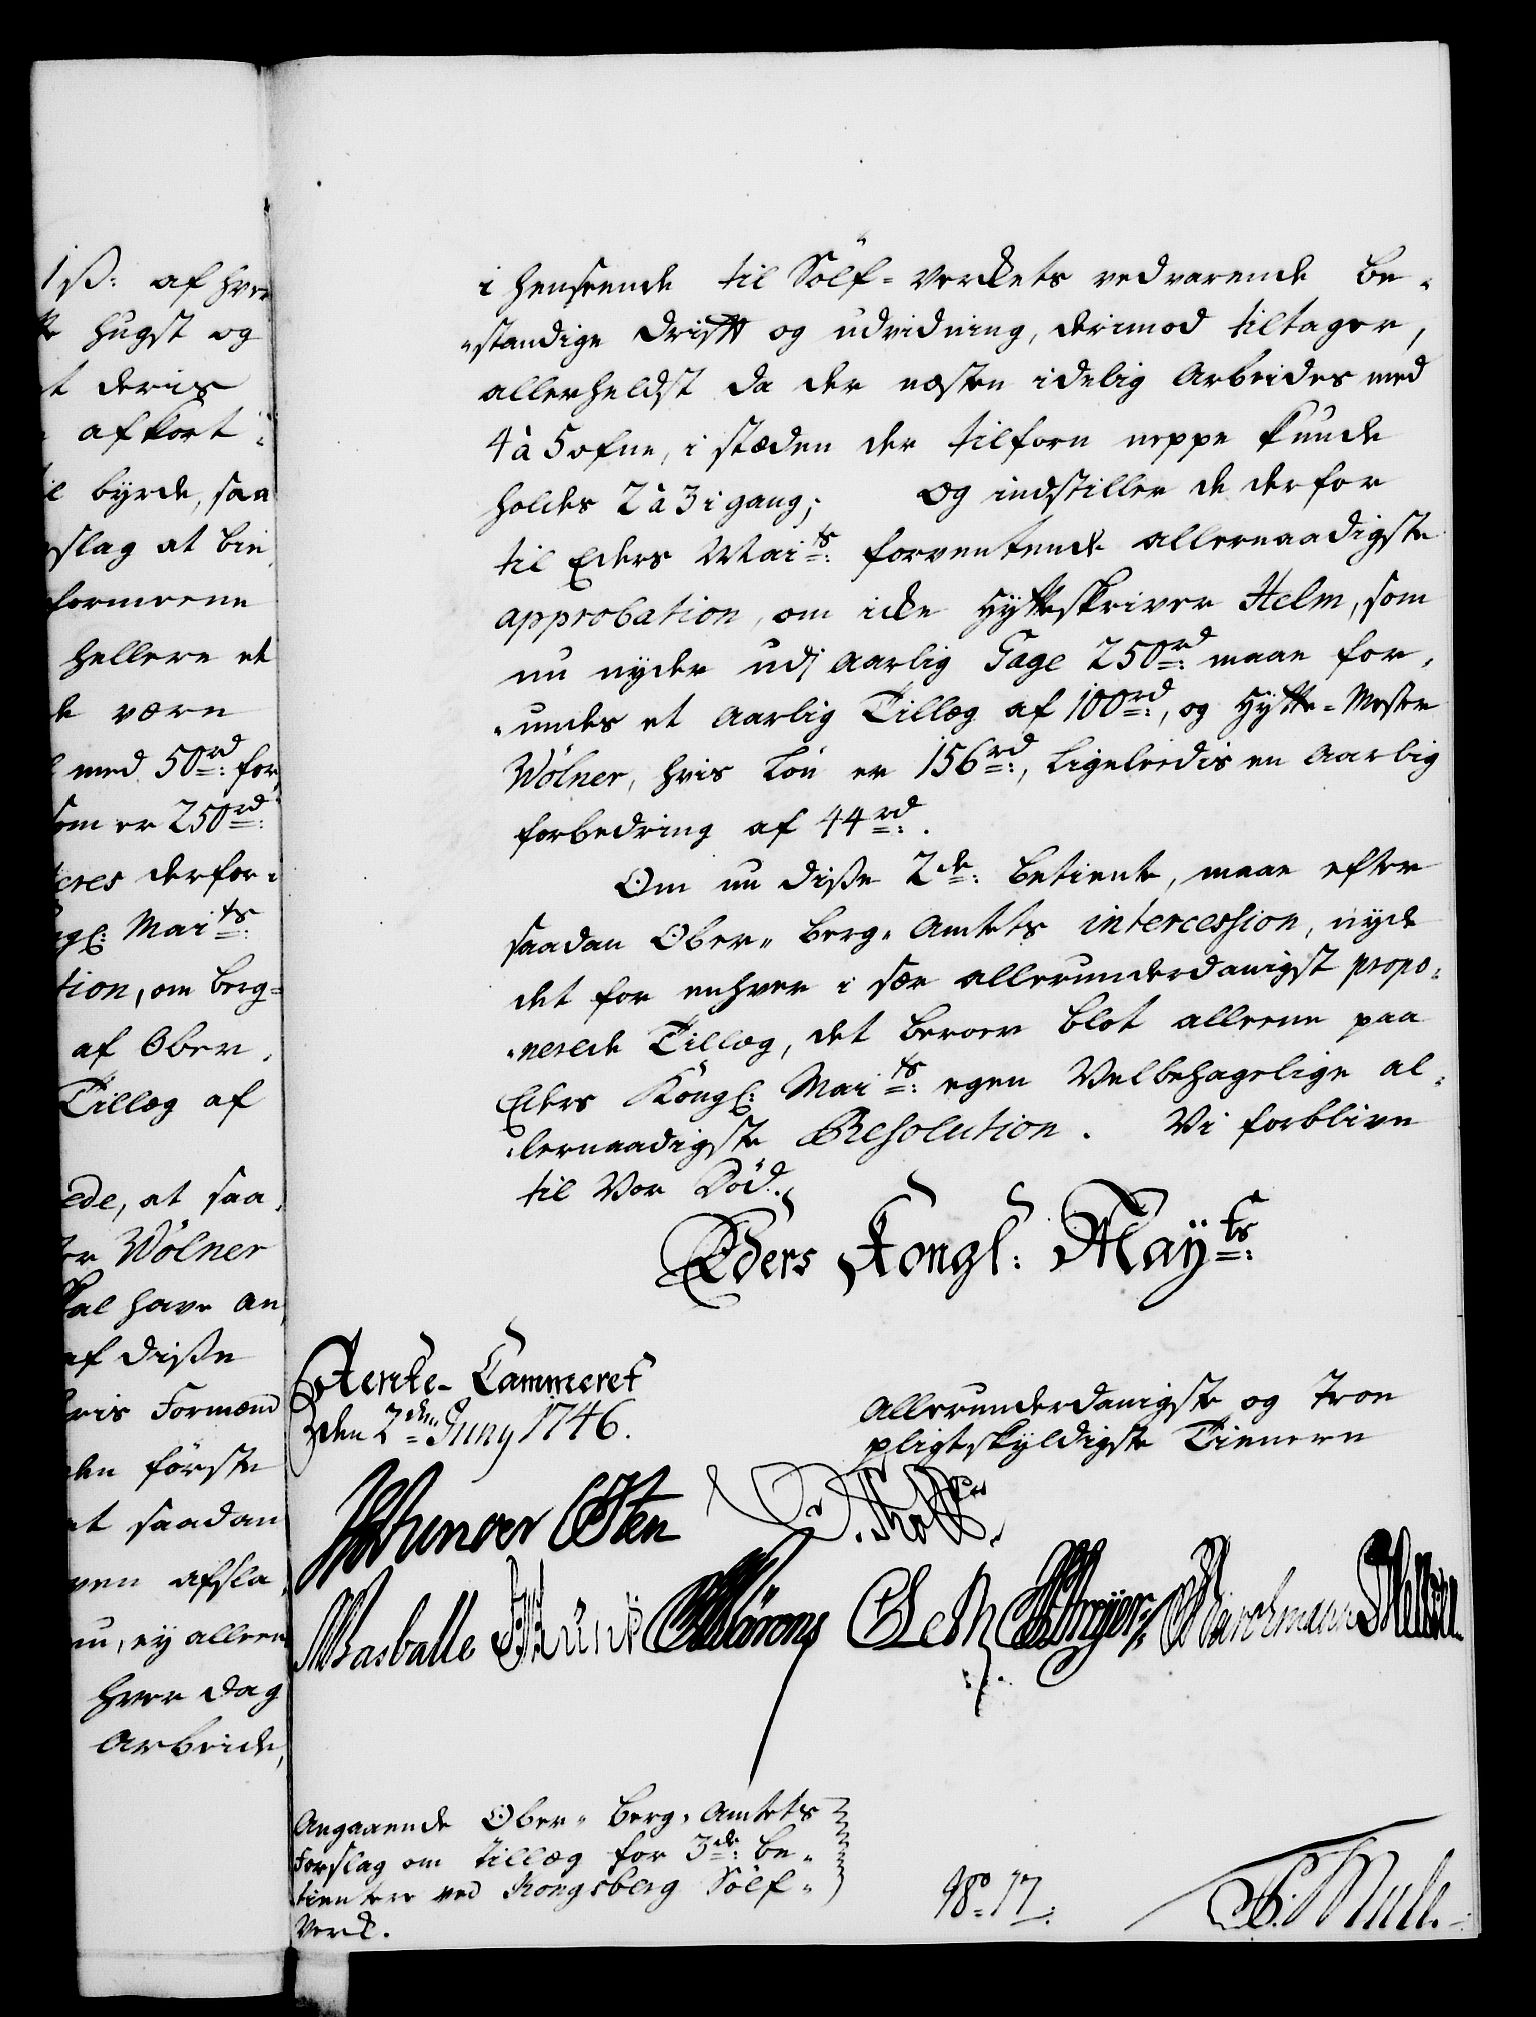 1 ß: af hver
hugst og
t deris
afkort
il byrde, saa
slag at bie
formeene
hellere et
de være
med 50rd: for
som er 250rd:
eres derfor
gl: Maits:
tion, om berg=
af Ober
Tillæg af
ede, at saa
er Wölner
skal have an
af disse
eris Formænd
den første
et saadan
ven afsla
nu, ey alleene
hver dag
Arbeide,
i henseende til Sölf=Verkets vedvarende be=
=standige Drifft og udvidning, derimod tiltager,
allerheldst da der næsten idelig Arbeides med
4 à 5 ofne, i stæden der tilforn neppe kunde
holdes 2 à 3 i gang; Og indstiller de derfor
til Eders Maits: forventende allernaadigste
approbation, om icke Hytteskriver Helm, som
nu nyder udj aarlig Gage 250rd: maae for=
=undes et Aarlig Tillæg af 100rd:, og Hytte=Mester
Wölner, hvis Løn er 156rd:, ligeleedis en Aarlig
forbedring af 44rd:.
Om nu disse 2de: betiente, maae efter
saadan Ober= Berg= Amtets intercession, nyde
det for enhver i sær allerunderdanigst propo=
=nerede Tillæg, det beroer blot alleene paa
Eders Kongl: Maits: egen Velbehagelige al=
=lernaadigste Resolution. Vi forblive
til Vor Död.
Eders Kongl: Mayts:
Rente-Cammeret
den 2den Juny 1746.
Allerunderdanigste og troe
pligtskyldigste Tienere
Osten
Masballe
Angaaende Ober= Berg= Amtets
Forslag om tillæg for 3de: be=
tientere ved Kongsberg Sölf=
Verk.
No 17.